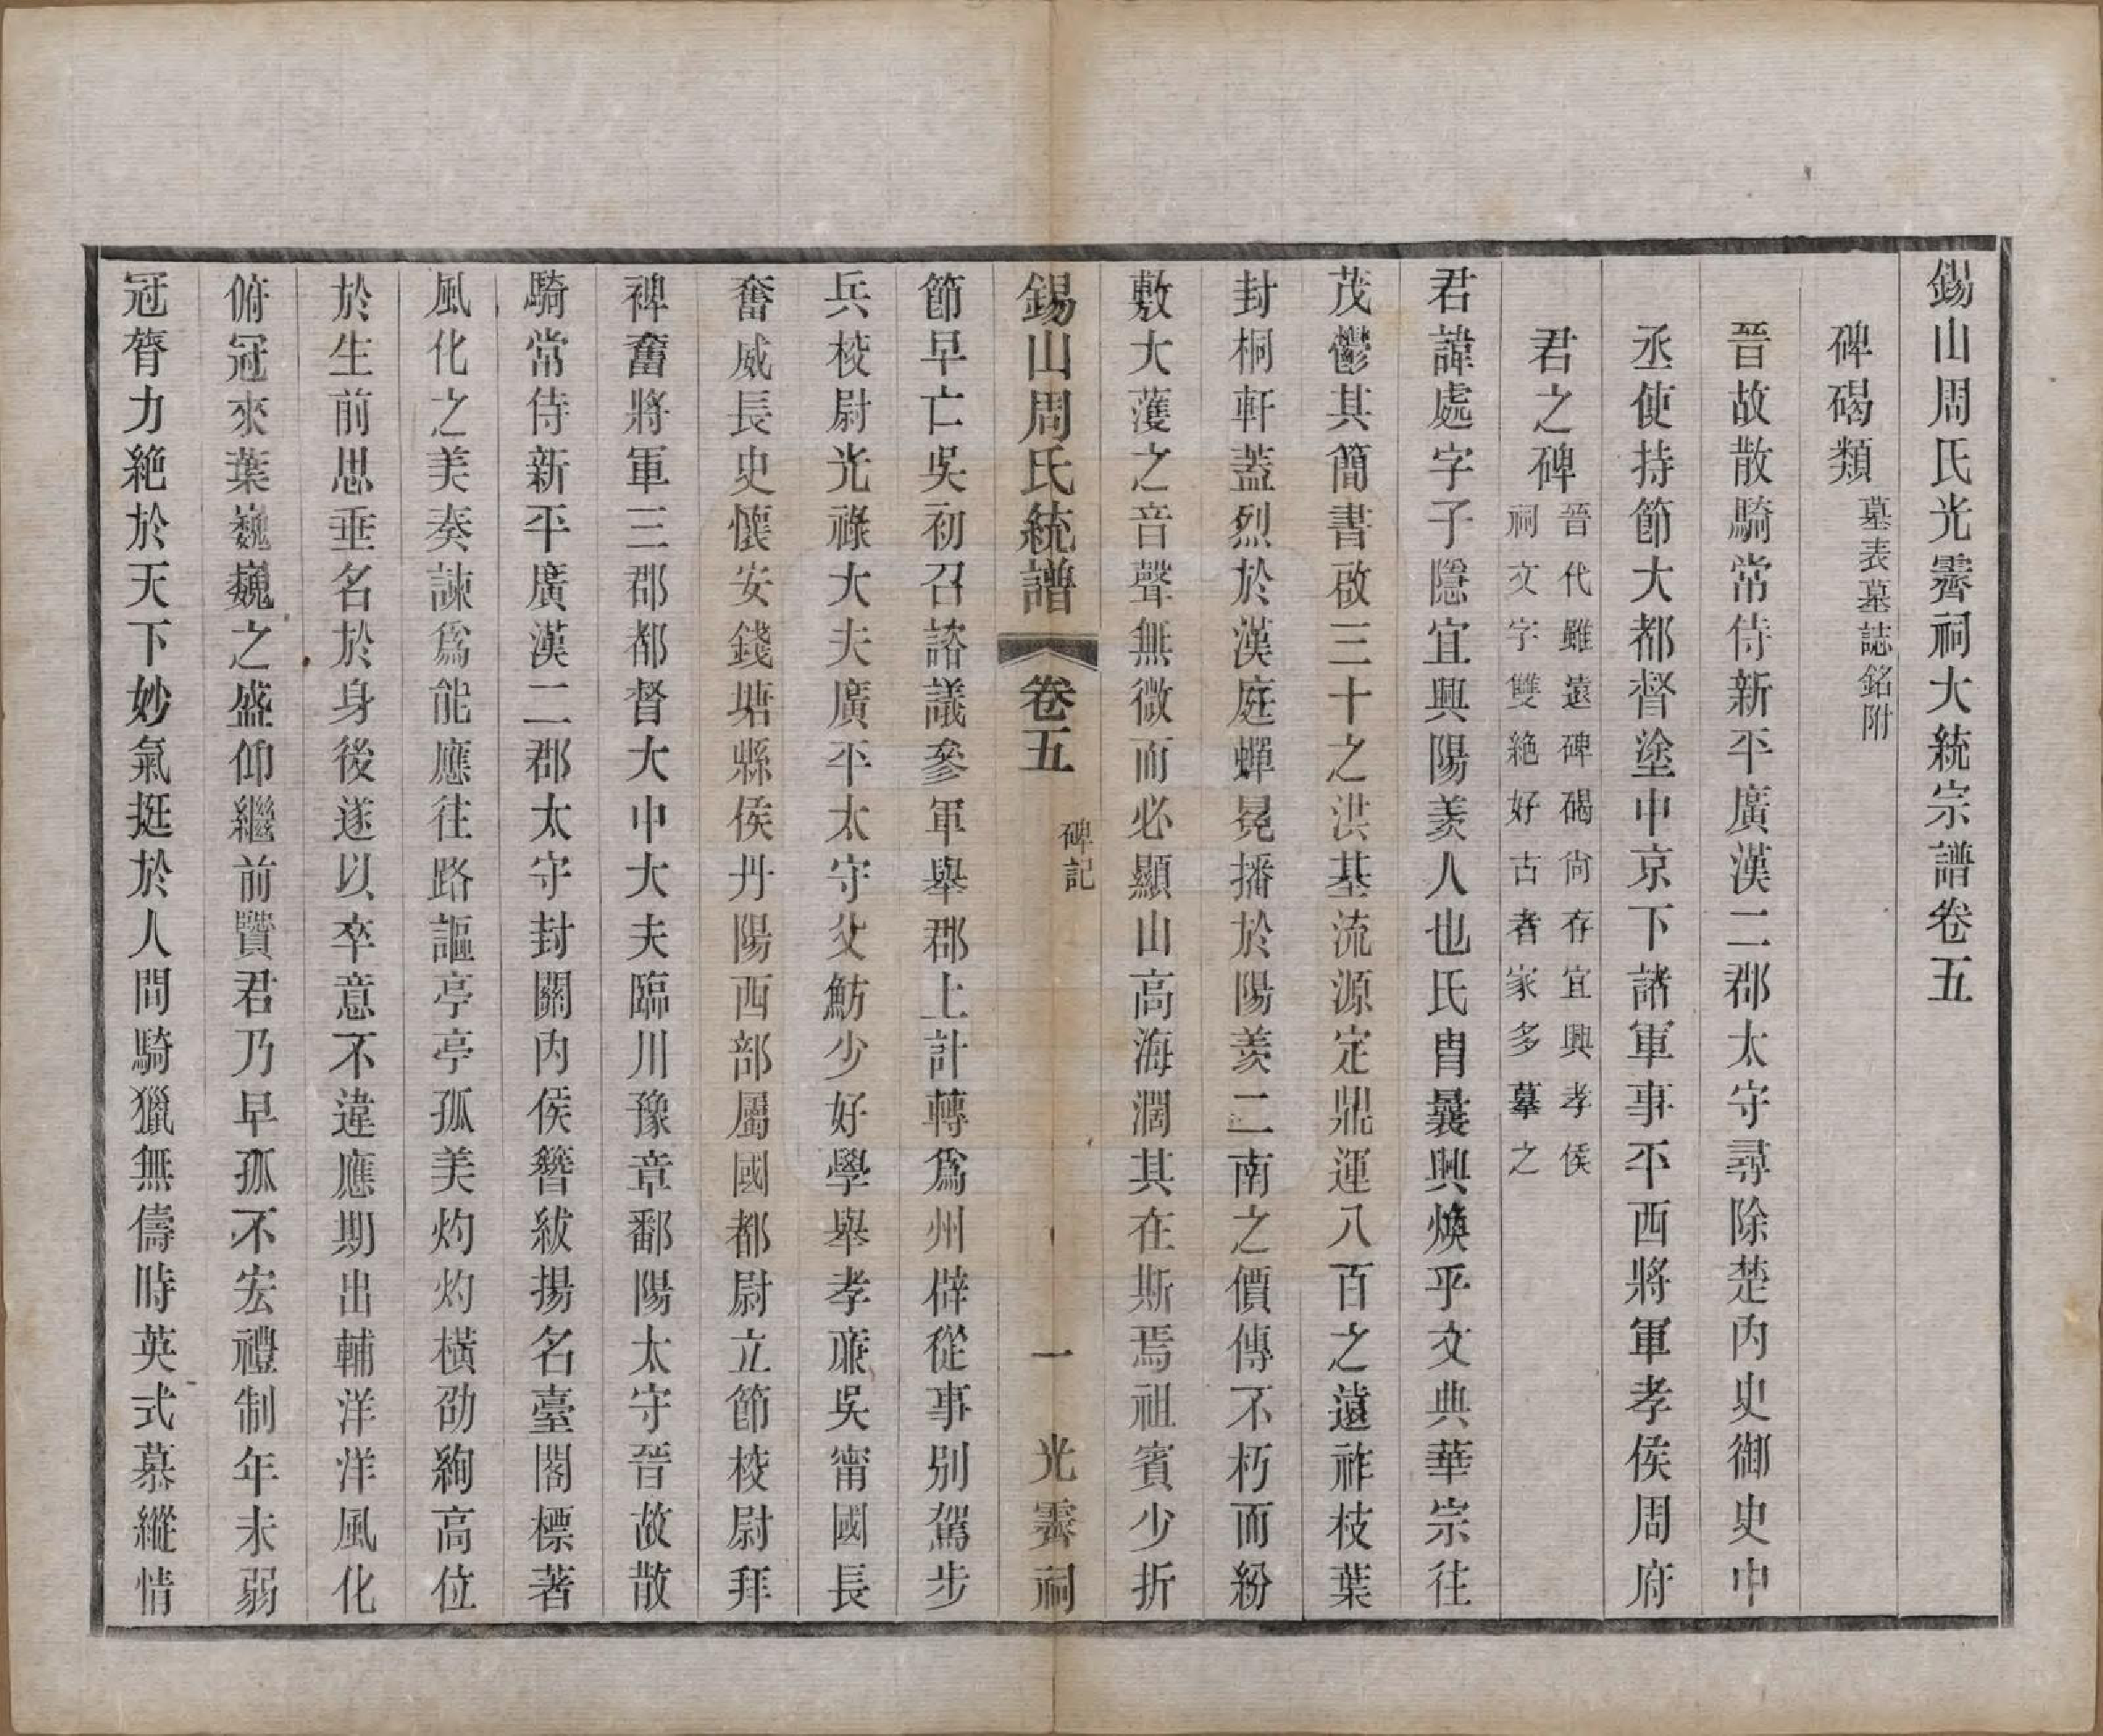 錫山周氏光霽祠大統宗譜卷五
碑碣類 墓表墓誌銘附
晉故散騎常侍新平廣漢二郡太守尋除楚內史御史中
丞使持節大都督塗中京下諸軍事平西將軍孝侯周府
君之碑 晉代雖遠碑碣尚存宜興孝侯
祠文字雙絶好古者家多摹之
君諱處字子隱宜興陽羨人也氏胄曩興煥乎文典華宗往
茂鬱其簡書啟三十之洪基流源定鼎運八百之遠祚枝葉
封桐軒蓋烈於漢庭蟬冕播於陽羨二南之價傳不朽而紛
敷大蒦之音聲無微而必顯山高海濶其在斯焉祖賓少折
錫山周氏統譜 卷五 碑記 一 光霽祠
節早亡吳初召諮議參軍舉郡上計轉爲州辟從事別駕步
兵校尉光祿大夫廣平太守父魴少好學舉孝廉吳甯國長
奮威長史懷安錢塘縣侯丹陽西部屬國都尉立節校尉拜
裨奮將軍三郡都督大中大夫臨川豫章鄱陽太守晉故散
騎常侍新平廣漢二郡太守封關內侯簪紱揚名臺閣標著
風化之美奏諫爲能應往路謳亭亭孤美灼灼橫劭絢高位
於生前思垂名於身後遂以卒意不違應期出輔洋洋風化
俯冠來葉巍巍之盛仰繼前賢君乃早孤不宏禮制年未弱
冠膂力絶於天下妙氣挺於人間騎獵無儔時英式慕縱情